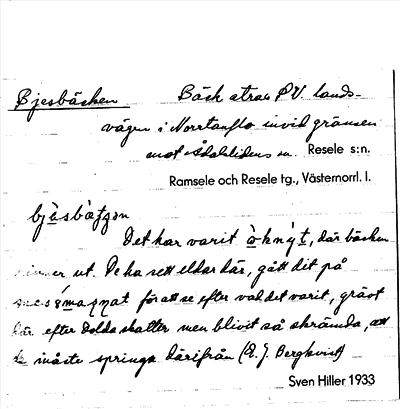 Bjesbäcken
Bäck strax P.V. lands-
vägen i Norrtanflo invid gränsen
mot Ådalslidens sn. Resele s:n.
Ramsele och Resele tg., Västernorrl. l.
Det har varit, där bäcken
rinner ut. De ha sett eldar där, gått dit på
för att se efter vad det varit, grävt
här efter dolda skatter men blivit så skrämda, att
de måste springa därifrån (E. J. Bergkvist)
Sven Hiller 1933